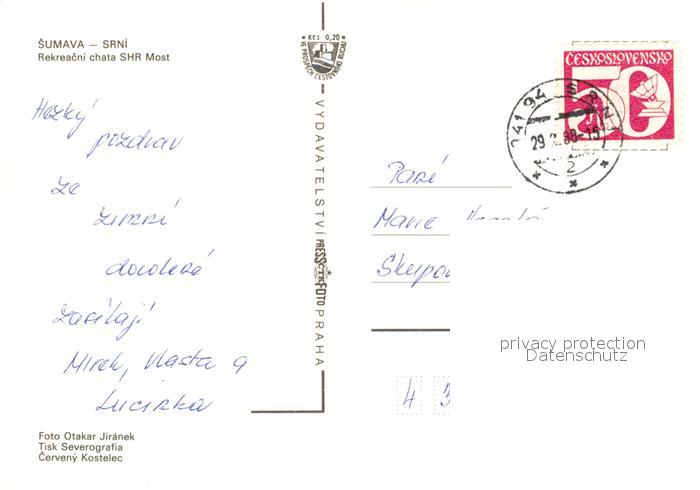 ŠUMAVA – SRNÍ
Rekreační chata SHR Most
Hezký
pozdrav
ze
zimní
dovolené
zasílají
Mirek, Vlasta a
Lucinka
Foto Otakar Jiránek
Tisk Severografia
Červený Kostelec
Kčs 0,20
VE PROSPĚCH CESTOVNÍHO RUCHU
VYDAVATELSTVÍ PRESSFOTO PRAHA
ČESKOSLOVENSKO
50
341 94
29.2.88-15
2
Paní
Marie
4 3
privacy protection
Datenschutz